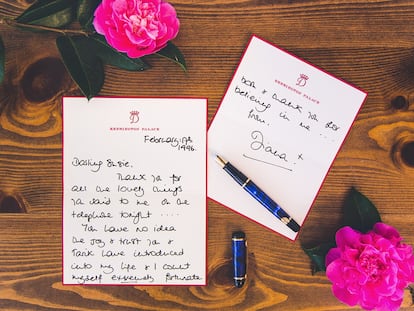 D
KENSINGTON PALACE
February 17th
1996.
Darling Susie.
Thank you for
all the lovely things
you said to me on the
telephone tonight ....
You have no idea
the joy & trust you &
have introduced
into my life & I count
myself extremely fortunate
D
KENSINGTON PALACE
& thank you for
believing in me ....
from.
Diana x